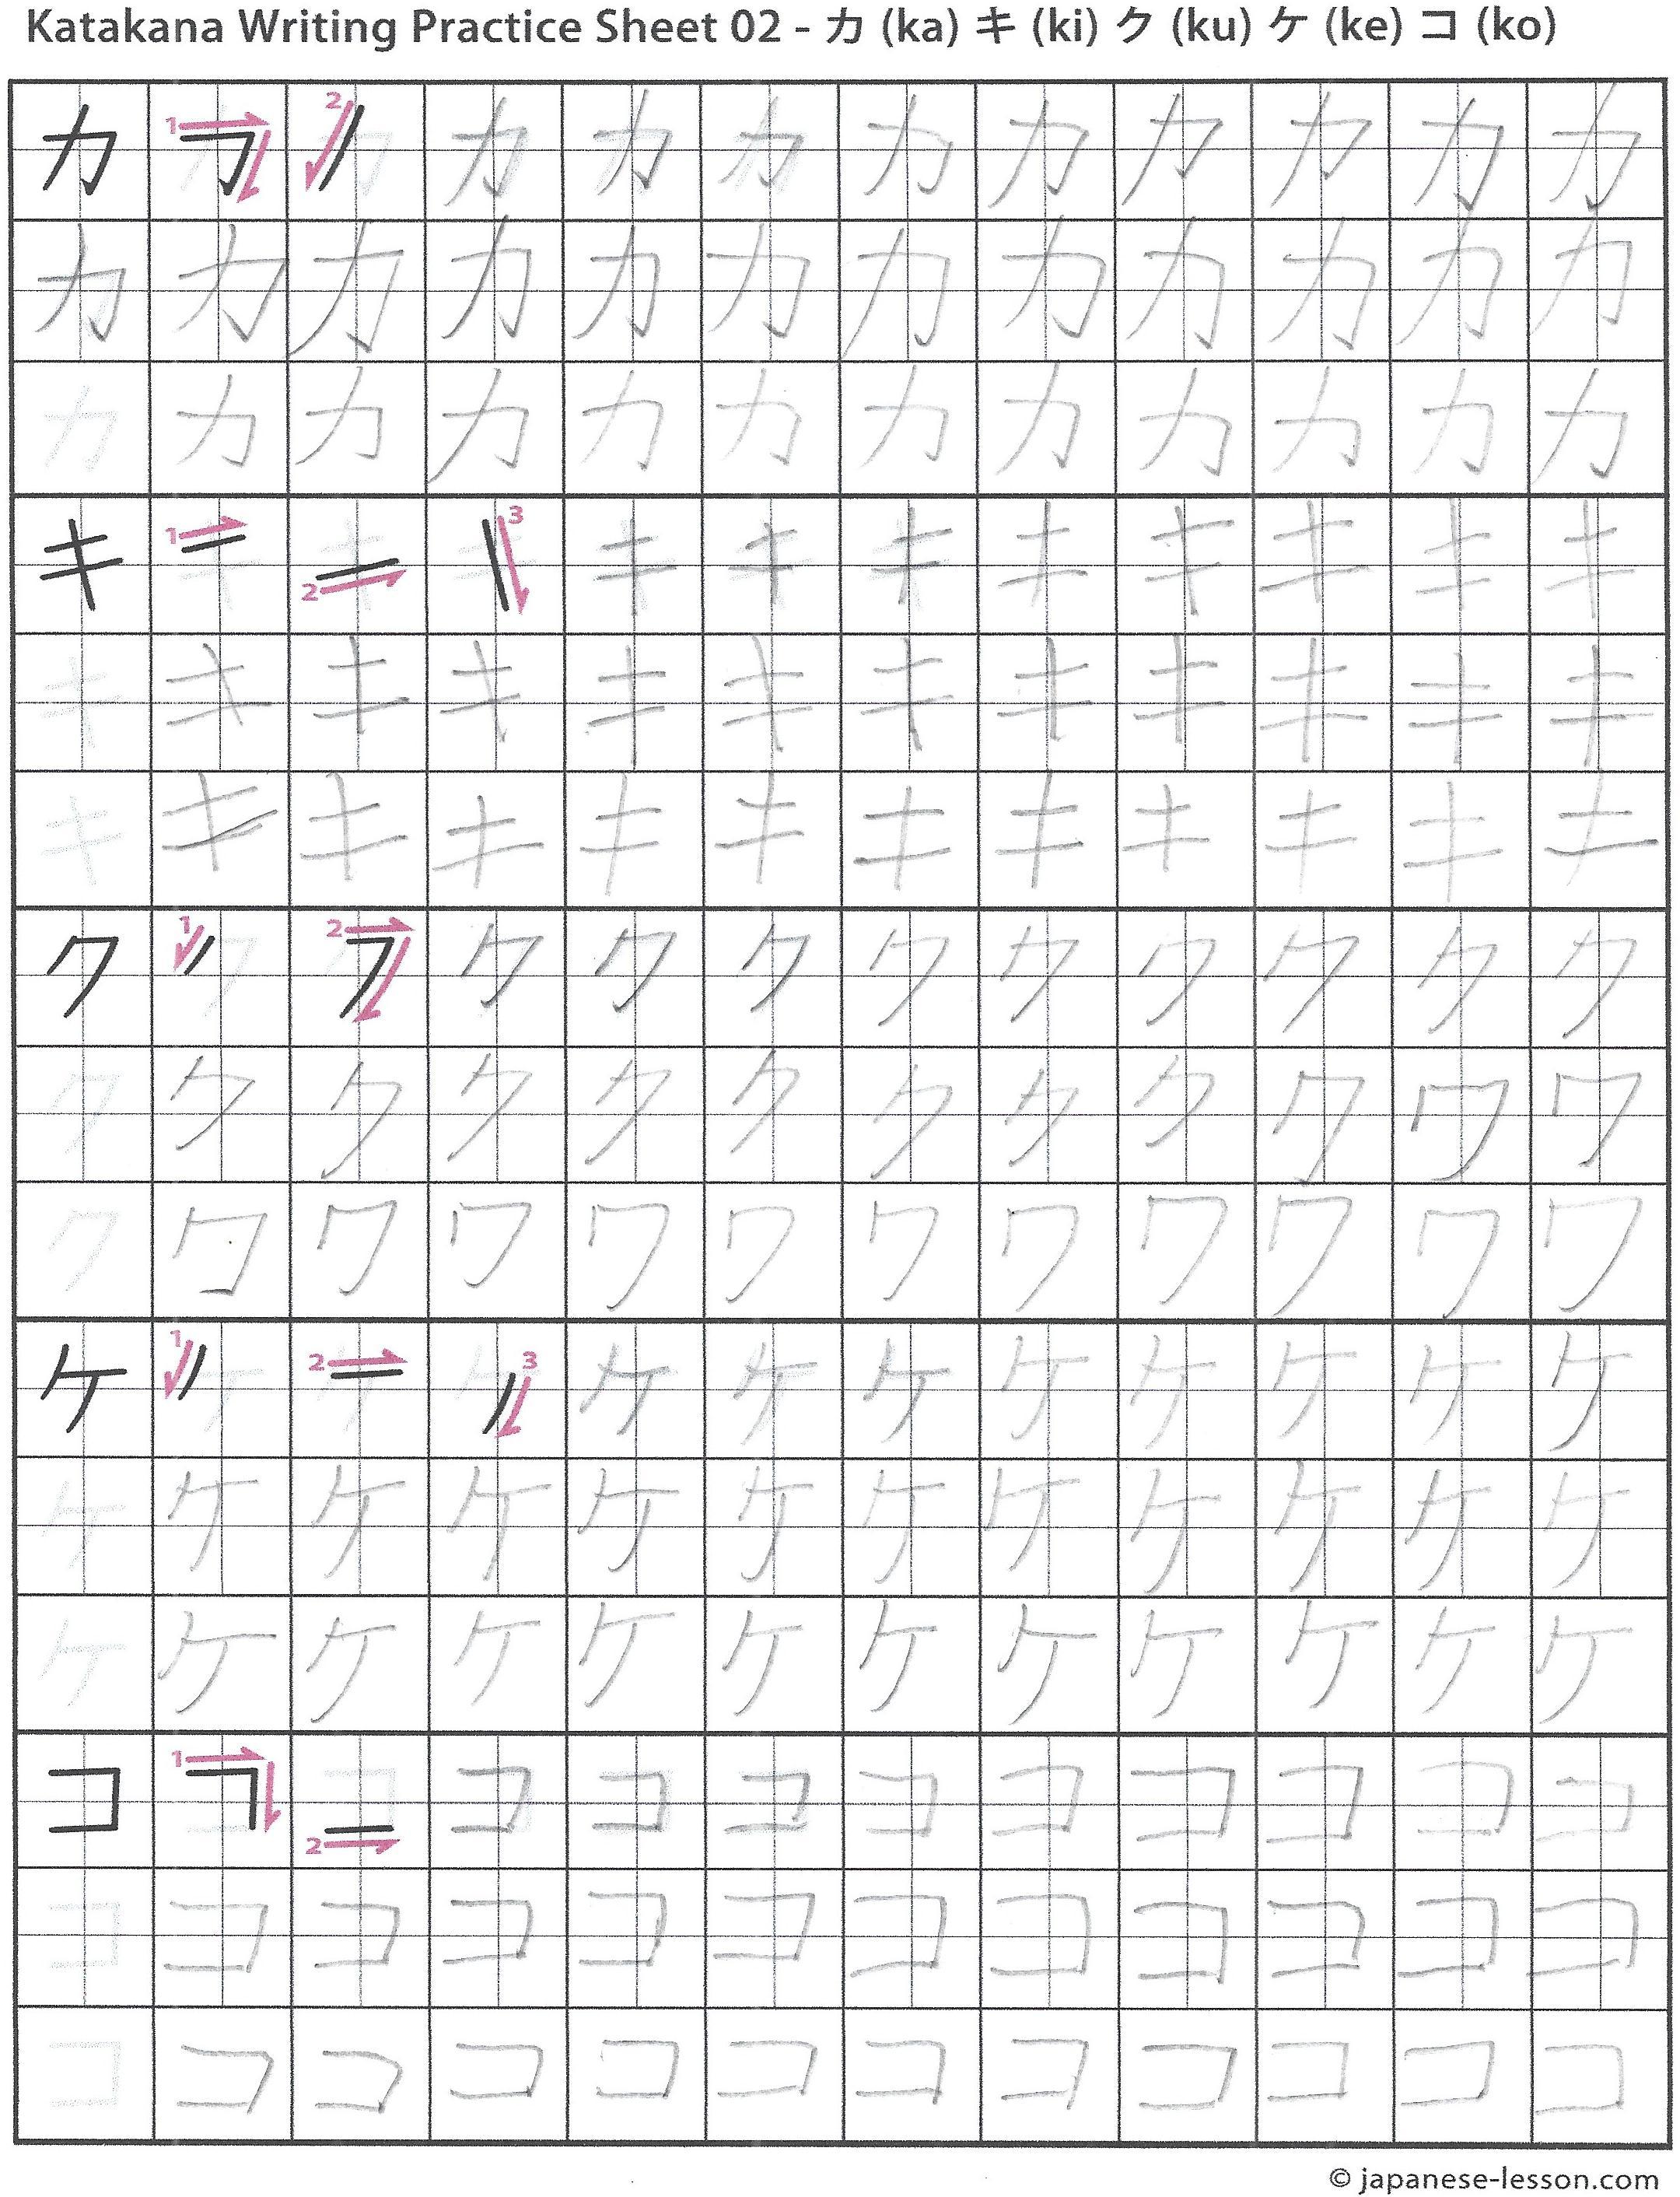 Katakana Writing Practice Sheet 02 - カ (ka) キ (ki) ク (ku) ケ (ke) コ (ko)
カ 1 カ 2 カ カ カ カ カ カ カ カ カ カ
カ カ カ カ カ カ カ カ カ カ カ カ
カ カ カ カ カ カ カ カ カ カ カ カ
キ 1 キ 2 キ 3 キ キ キ キ キ キ キ キ キ
キ キ キ キ キ キ キ キ キ キ キ キ
キ キ キ キ キ キ キ キ キ キ キ キ
ク 1 ク 2 ク ク ク ク ク ク ク ク ク ク
ク ク ク ク ク ク ク ク ク ク ク ク
ク ク ク ク ク ク ク ク ク ク ク ク
ケ 1 ケ 2 ケ 3 ケ ケ ケ ケ ケ ケ ケ ケ ケ
ケ ケ ケ ケ ケ ケ ケ ケ ケ ケ ケ ケ
ケ ケ ケ ケ ケ ケ ケ ケ ケ ケ ケ ケ
コ 1 コ 2 コ コ コ コ コ コ コ コ コ コ
コ コ コ コ コ コ コ コ コ コ コ コ
コ コ コ コ コ コ コ コ コ コ コ コ
© japanese-lesson.com